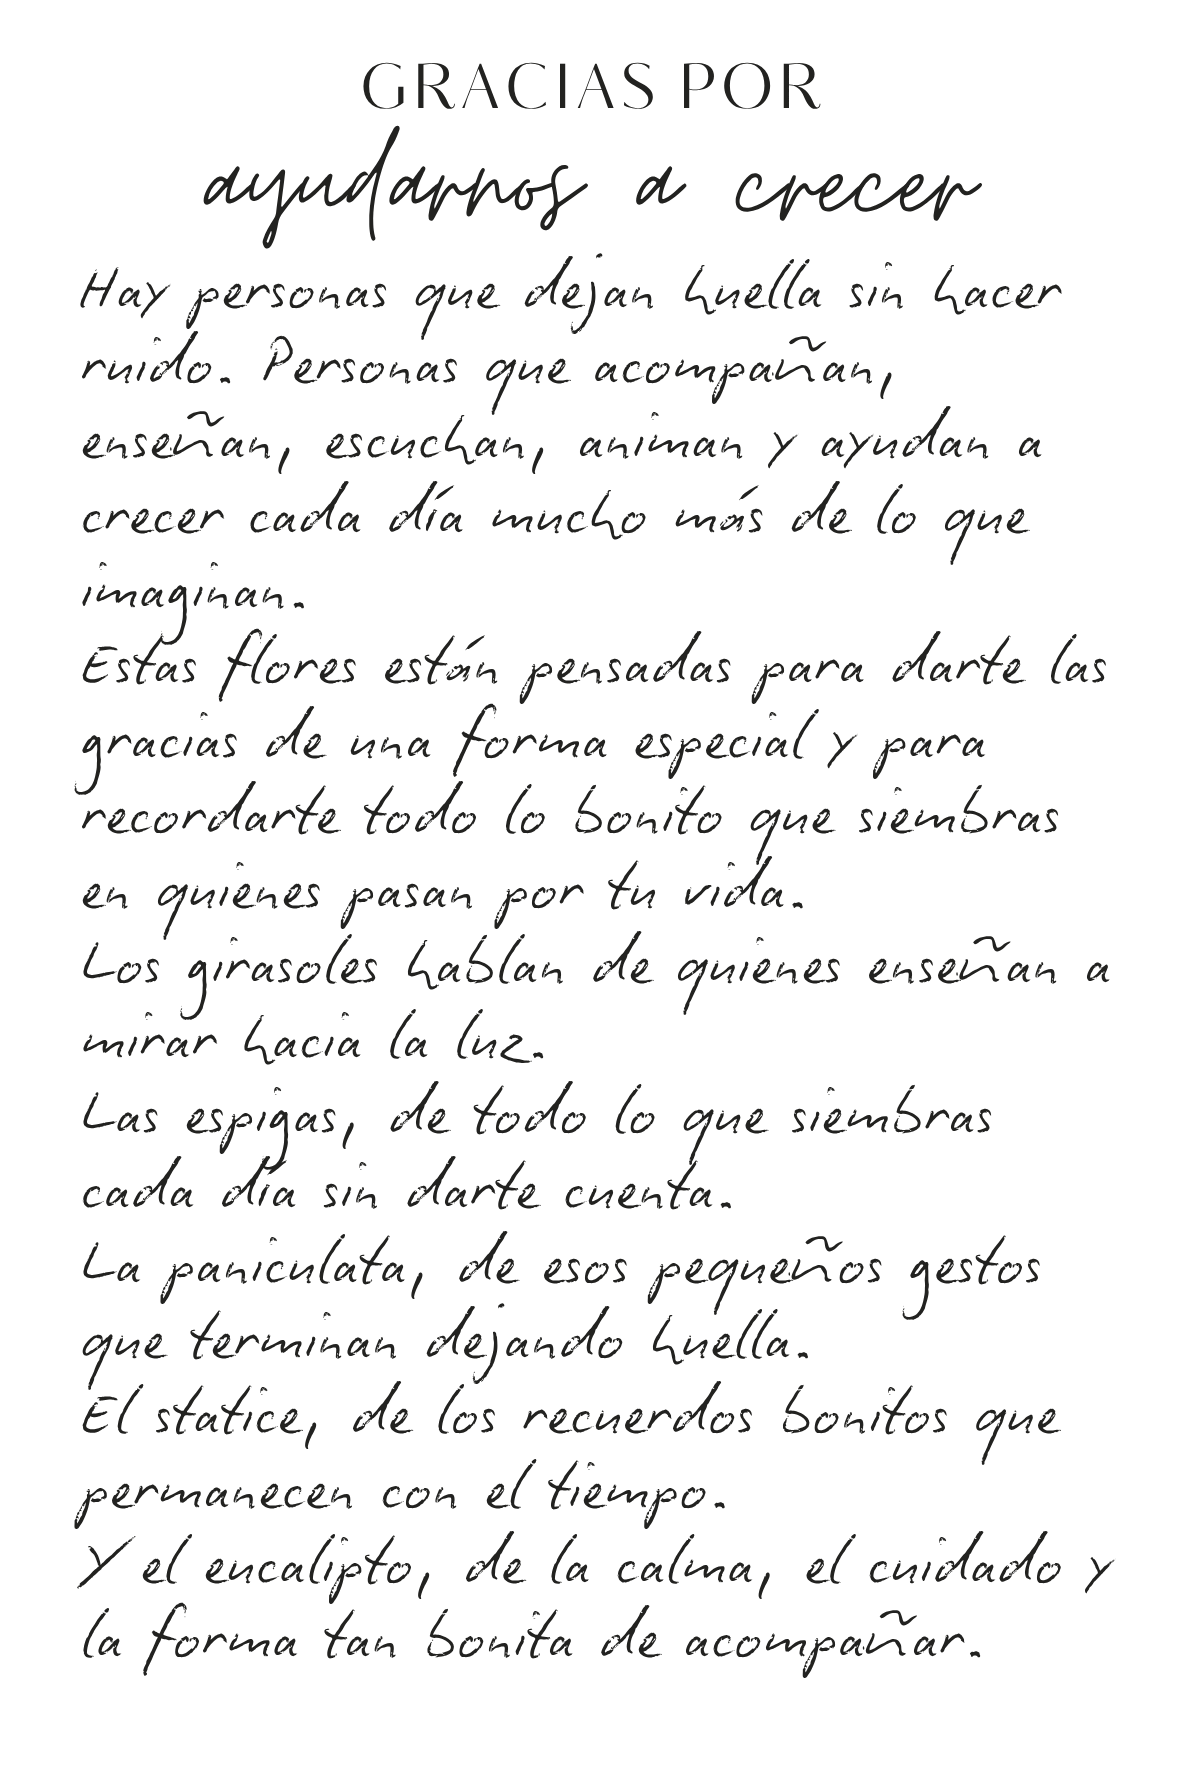 GRACIAS POR
ayudarnos a crecer
Hay personas que dejan huella sin hacer
ruido. Personas que acompañan,
enseñan, escuchan, animan y ayudan a
crecer cada día mucho más de lo que
imaginan.
Estas flores están pensadas para darte las
gracias de una forma especial y para
recordarte todo lo bonito que siembras
en quienes pasan por tu vida.
Los girasoles hablan de quienes enseñan a
mirar hacia la luz.
Las espigas, de todo lo que siembras
cada día sin darte cuenta.
La paniculata, de esos pequeños gestos
que terminan dejando huella.
El statice, de los recuerdos bonitos que
permanecen con el tiempo.
Y el eucalipto, de la calma, el cuidado y
la forma tan bonita de acompañar.